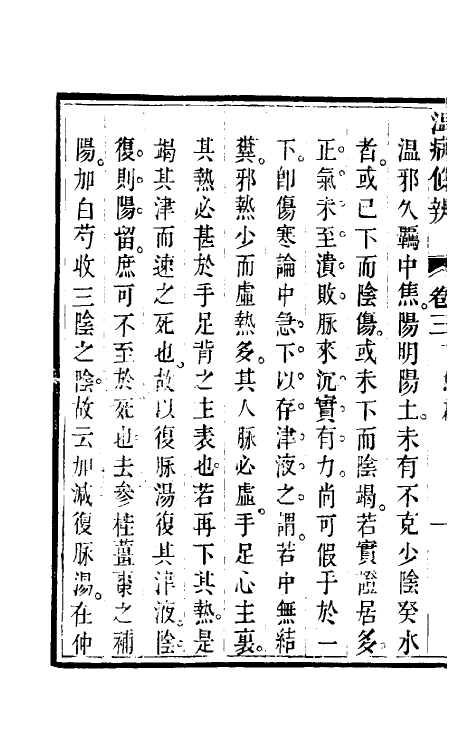 溫病條辨　卷三　一
溫邪久羈中焦。陽明陽土。未有不克少陰癸水
者。或已下而陰傷。或未下而陰竭。若實證居多。
正氣未至潰敗。脈來沉實有力。尚可假手於一
下。卽傷寒論中急下以存津液之謂。若中無結
糞。邪熱少而虛熱多。其人脈必虛。手足心主裏。
其熱必甚於手足背之主表也。若再下其熱。是
竭其津而速之死也。故以復脈湯復其津液。陰
復。則陽留。庶可不至於死也。去參桂薑棗之補
陽。加白芍收三陰之陰。故云加減復脈湯。在仲